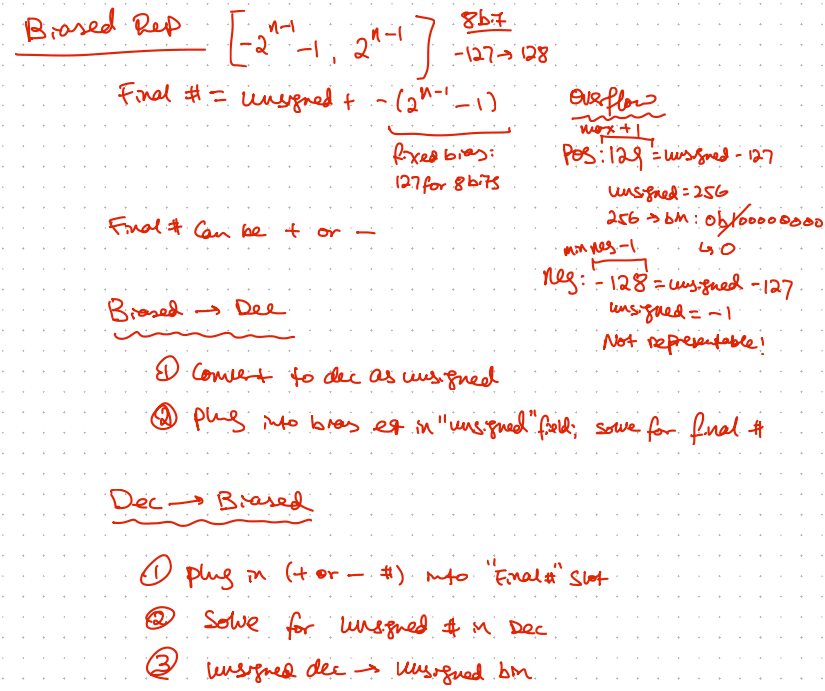 Biased Rep [-2^{n-1} -1, 2^{n-1}]
8bit
-127 → 128
Final # = unsigned + -(2^{n-1} -1)
fixed bias:
127 for 8bits
Final # can be + or -
Overflow
max +1
Pos: 129 = unsigned - 127
unsigned = 256
256 → bin: 0b100000000
↳ 0
min neg -1
Neg: -128 = unsigned - 127
unsigned = -1
Not representable!
Biased → Dec
① Convert to dec as unsigned
② Plug into bias eq in "unsigned" field; solve for final #
Dec → Biased
① Plug in (+ or - #) into "Final #" Slot
② Solve for unsigned # in Dec
③ unsigned dec → unsigned bin